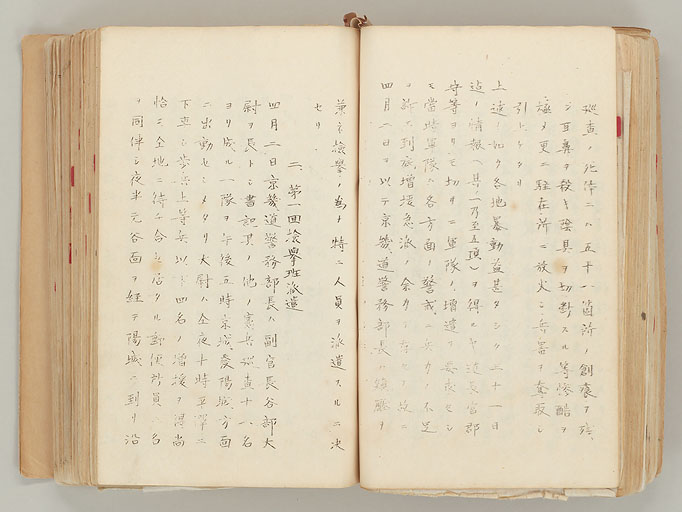 巡査ノ死体ニハ五十一箇所ノ創痍ヲ残
シ耳鼻ヲ殺キ陰具ヲ切断スル等惨酷ヲ
極メ更ニ駐在所ニ放火シ兵器ヲ奪取シ
引上ケタリ
上述ノ如ク各地暴動益甚タシク三十一日
迄ノ情報(其一乃至五項)ヲ得ルヤ道長官郡
守等ヨリモ切リニ軍隊ノ増遣ヲ要求セシ
モ當時軍隊ハ各方面ノ警戒ニ兵力ノ不足
ヲ訴ヘ到底増援急派ノ余力ナ
四月二日ヲ以テ京畿道警務部長ハ鎮壓ヲ
兼ネ検挙ノ為メ特ニ人員ヲ派遣スルニ決
セリ
二、第一回検挙班派遣
四月二日京畿道警務部長ハ副官長谷部大
尉ヲ長トシ書記其ノ他ノ憲兵巡査十八名
ヨリ成ル一隊ヲ午後五時京城発陽城方面
ニ出動セシメタリ大尉ハ仝夜十時平澤ニ
下車シ歩兵上等兵以下四名ノ増援ヲ得尚
恰モ仝地ニ待チ合セ居タル郵便所員一名
ヲ同伴シ夜半元谷面ヲ経テ陽城ニ到リ沿